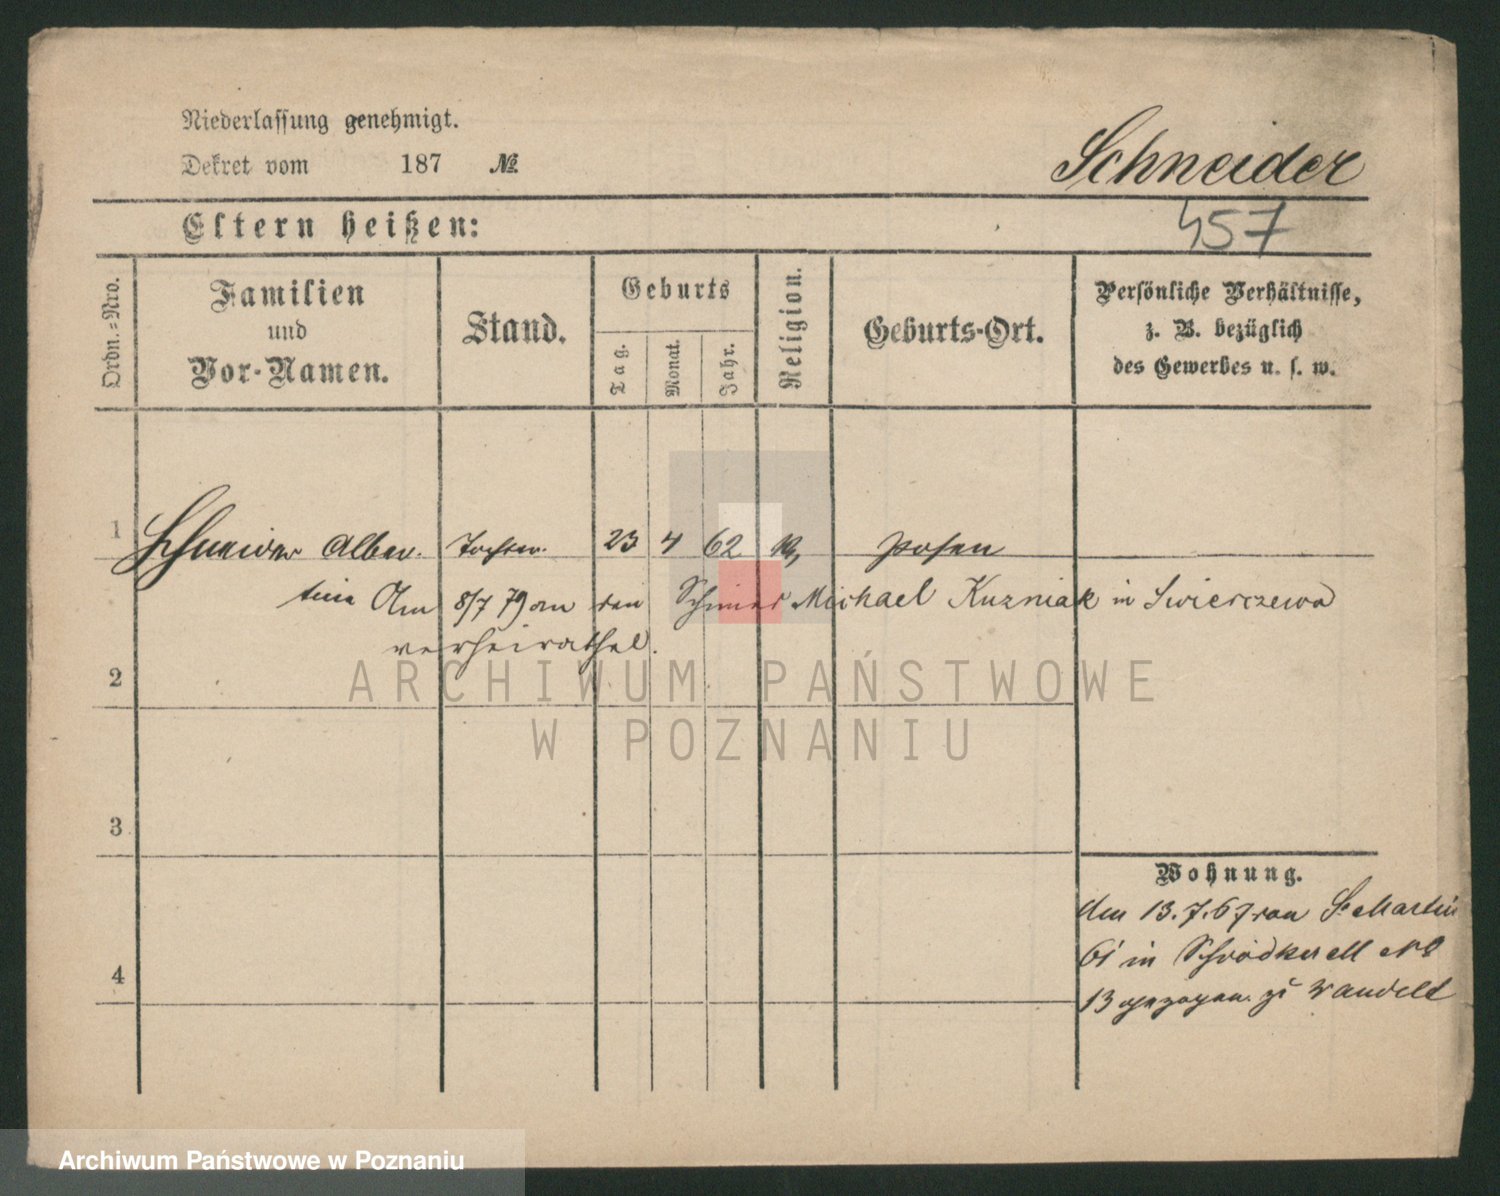 Niederlassung genehmigt.
Dekret vom 187 №
Schneider
Eltern heißen:
457
Ordn.=Nro.
Familien
und
Vor-Namen.
Stand.
Geburts
Tag.
Monat.
Jahr.
Religion.
Geburts-Ort.
Persönliche Verhältnisse,
z. B. bezüglich
des Gewerbes u. s. w.
1 Schneider Alber- Tochter 23 4 62 Posen
tine Am 8/7 79 an den Michael Kuzniak in Swierczewo
verheirathet.
2
ARCHIWUM PAŃSTWOWE
W POZNANIU
3
Wohnung.
den 13.7.67 von St Martin
61 in
4
13 gezogen. zu Wandelt
Archiwum Państwowe w Poznaniu